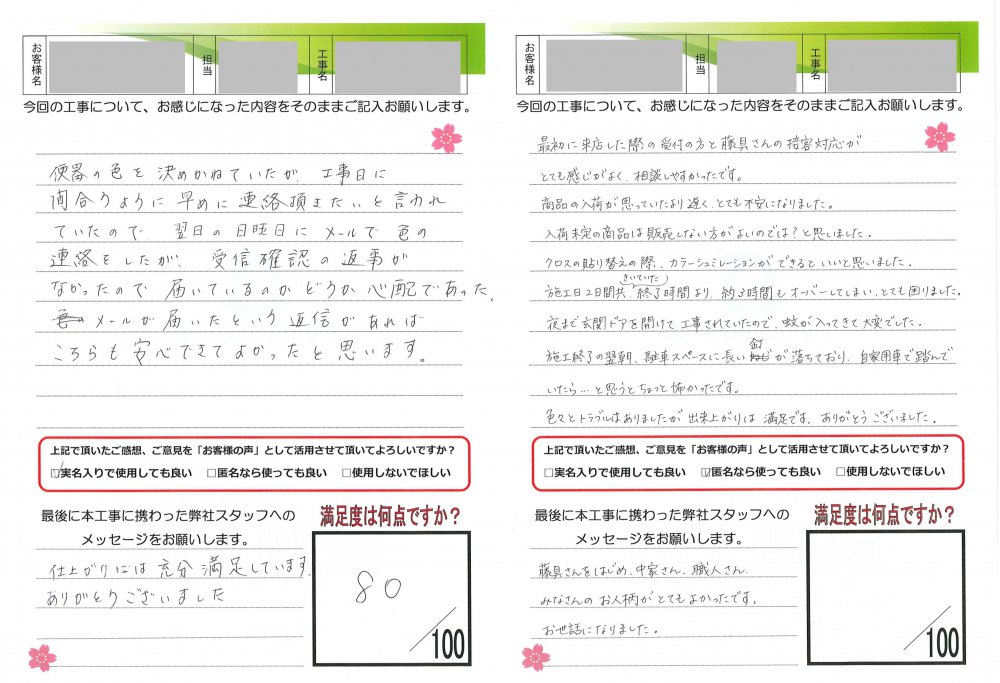 お客様名
担当
工事名
今回の工事について、お感じになった内容をそのままご記入お願いします。
便器の色を決めかねていたが、工事日に
間合うように早めに連絡頂きたいと言われ
ていたので 翌日の日曜日にメールで色の
連絡をしたが、受信確認の返事が
なかったので届いているのかどうか心配であった。
メールが届いたという返信があれば
こちらも安心できてよかったと思います。
上記で頂いたご感想、ご意見を「お客様の声」として活用させて頂いてよろしいですか？
☑実名入りで使用しても良い □匿名なら使っても良い □使用しないでほしい
最後に本工事に携わった弊社スタッフへの
メッセージをお願いします。
仕上がりには充分満足しています。
ありがとうございました
満足度は何点ですか？
80
/100
お客様名
担当
工事名
今回の工事について、お感じになった内容をそのままご記入お願いします。
最初に来店した際の受付の方と藤具さんの接客対応が
とても感じがよく、相談しやすかったです。
商品の入荷が思っていたより遅く、とても不安になりました。
入荷未定の商品は販売しない方がよいのでは？と思いました。
クロスの貼り替えの際、カラーシュミレーションができるといいと思いました。
施工日2日間共、きいていた終了時間より、約3時間もオーバーしてしまい、とても困りました。
夜まで玄関ドアを開けて工事されていたので、蚊が入ってきて大変でした。
施工終了の翌朝、駐車スペースに長い釘が落ちており、自家用車で踏んで
いたら…と思うとちょっと怖かったです。
色々とトラブルはありましたが出来上がりは満足です。ありがとうございました。
上記で頂いたご感想、ご意見を「お客様の声」として活用させて頂いてよろしいですか？
□実名入りで使用しても良い ☑匿名なら使っても良い □使用しないでほしい
最後に本工事に携わった弊社スタッフへの
メッセージをお願いします。
藤具さんをはじめ、中家さん、職人さん、
みなさんのお人柄がとてもよかったです。
お世話になりました。
満足度は何点ですか？
/100